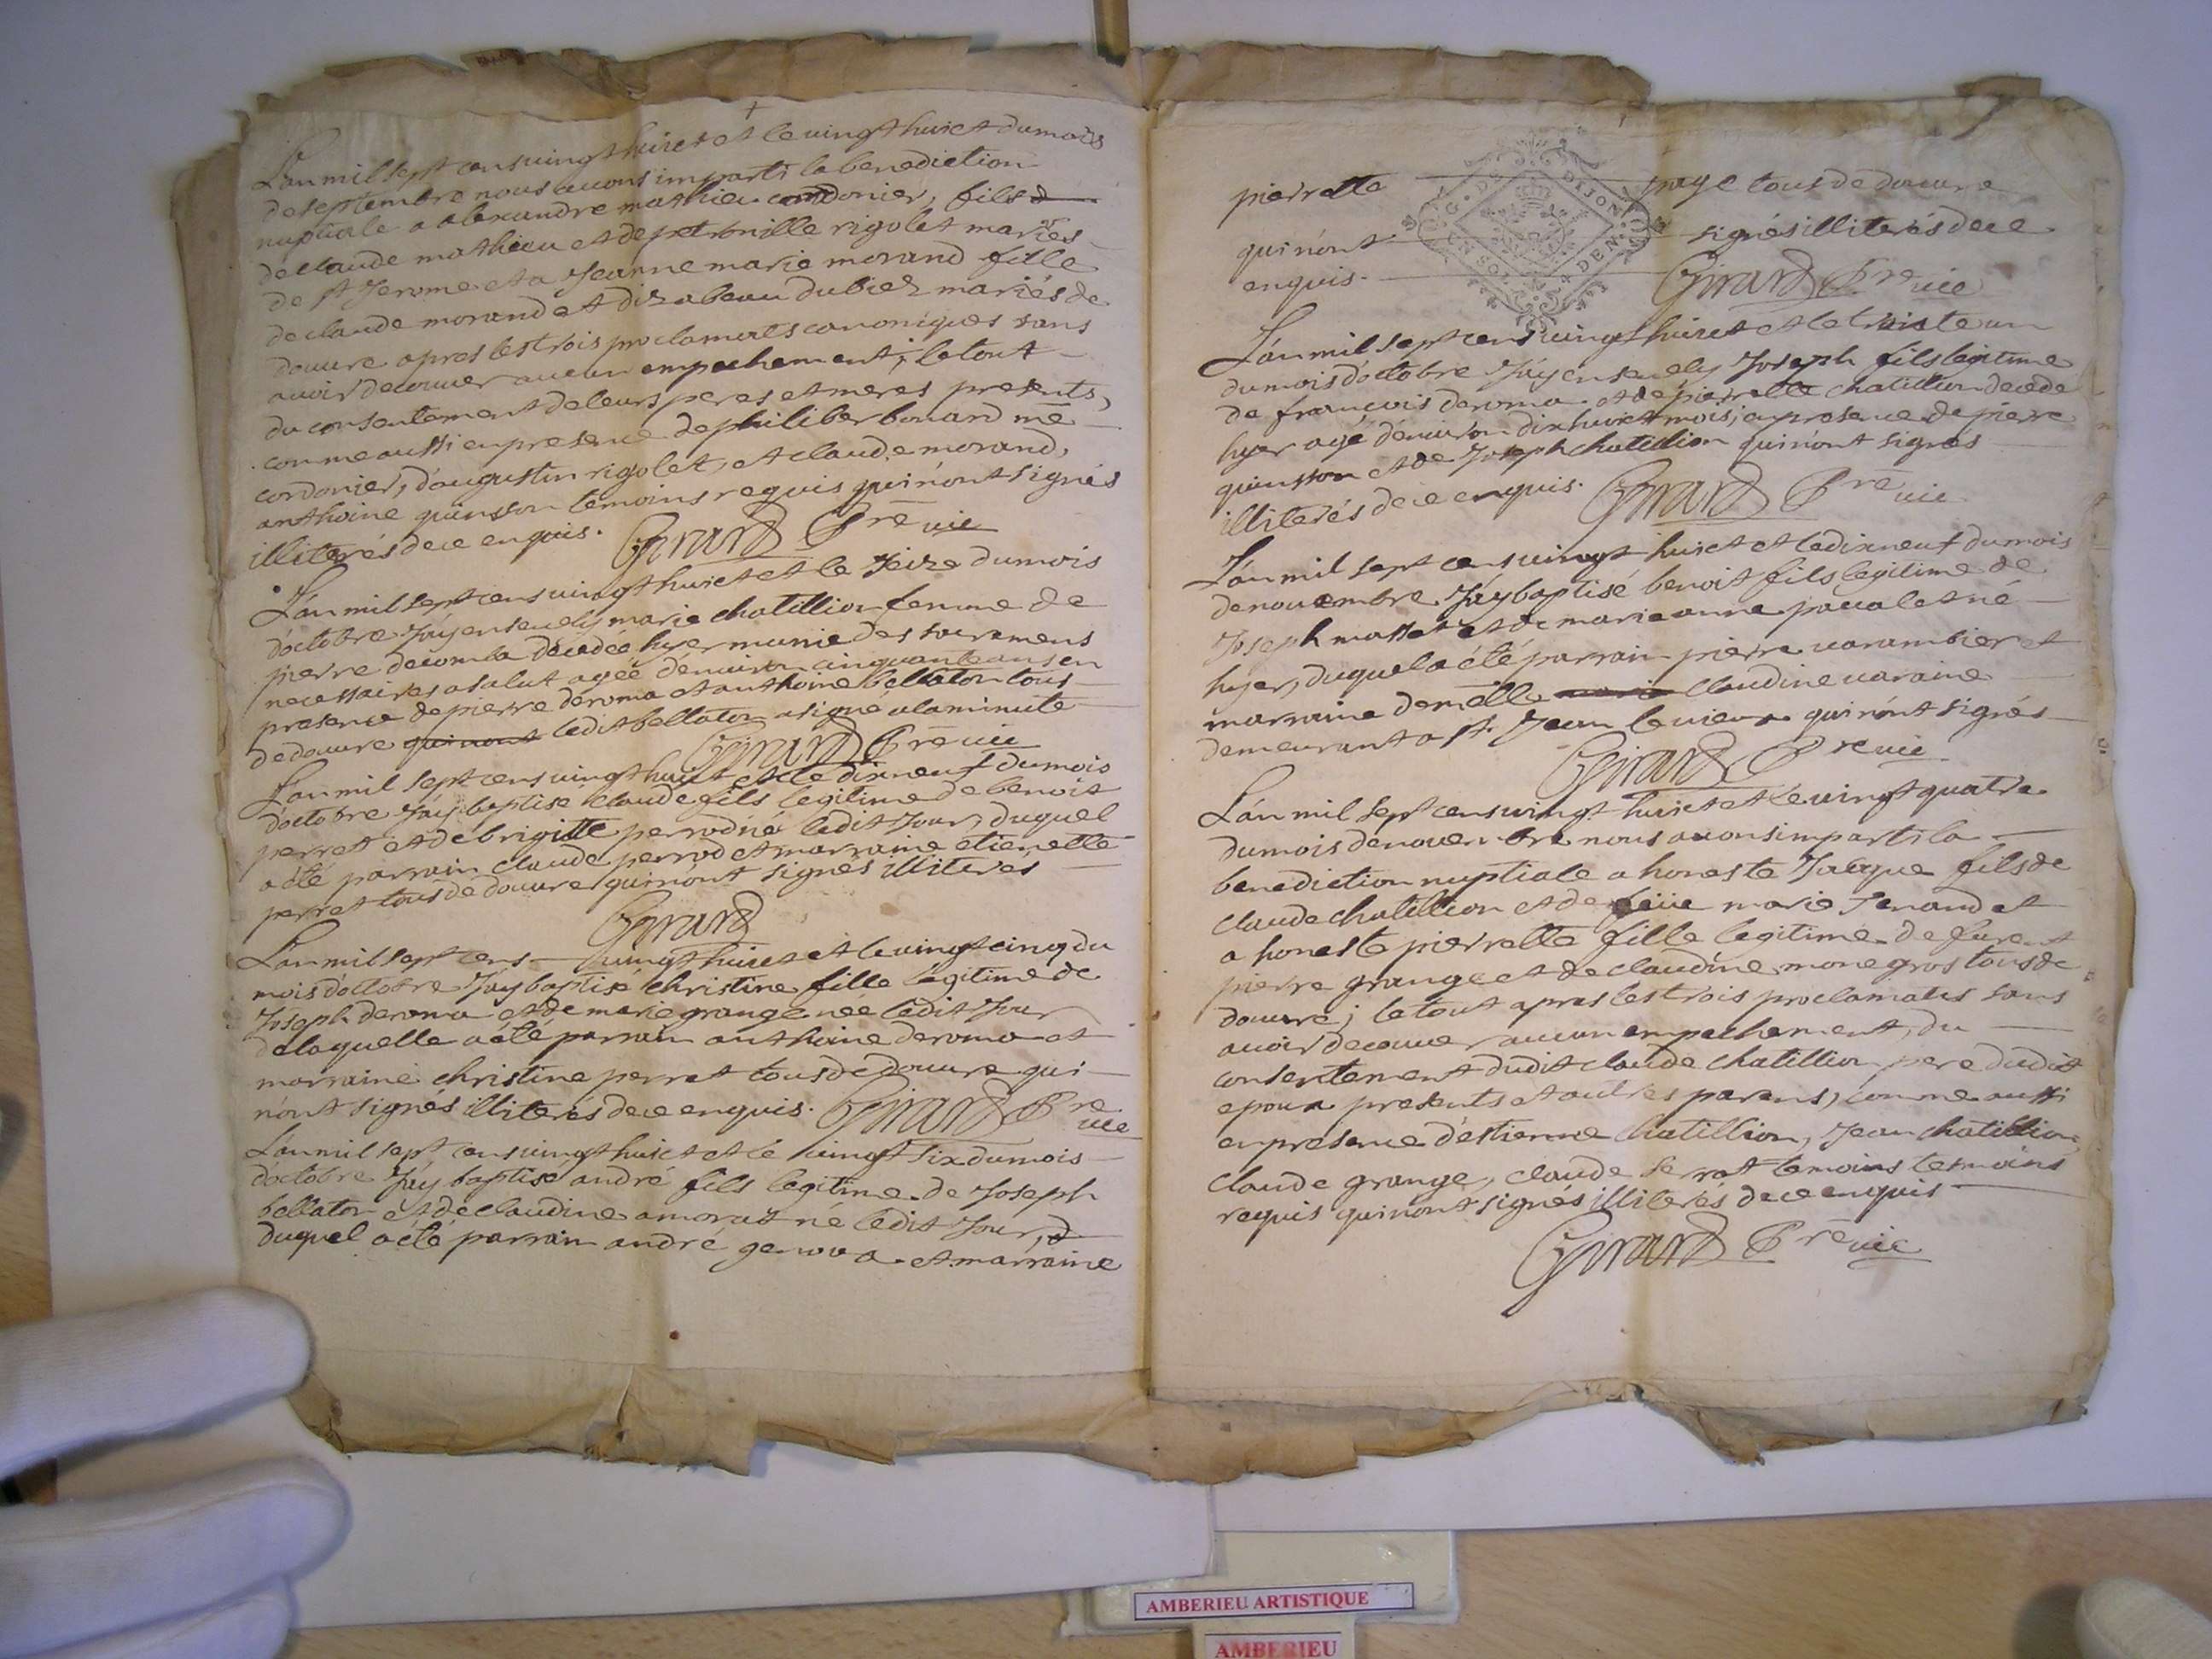 L'an mil sept cens vingt huict et le vingt huict du mois
de septembre nous avons imparti la benediction
nuptiale a alexandre mathieu cordonier, fils
de claude mathieu et de petronille rigolet mariés
de st Jerome et a Jeanne marie morand fille
de claude morand et disabeau dubiez mariés de
douvre apres les trois proclamats canoniques sans
avoir decouver aucun empechement; le tout
du consentement de leurs peres et meres presents,
comme aussi en presence de philiber bonard me
cordonier, d'augustin rigolet, et claude morand,
anthoine quinsson temoins requis qui n'ont signés
illiterés de ce enquis. Girard Pre vic
L'an mil sept cens vingt huict et le seize du mois
d'octobre J'ay ensevely marie chatillion femme de
pierre decomba decedée hyer munie des sacremens
necessaires a salut agéé d'environ cinquante ans en
presence de pierre deroma et anthoine bellaton tous
de douvre qui n'ont ledit bellaton a signe a la minute
Girard Pre vic
L'an mil sept cens vingt huict et le dixneuf du mois
d'octobre J'ay baptisé claude fils legitime de benoit
perret et de brigitte perrod né ledit Jour, duquel
a été parrain claude perrod et marraine etienette
perret tous de douvre qui n'ont signés illiterés
Girard
L'an mil sept cens vingt huict et le vingt cinq du
mois d'octobre J'ay baptisé christine fille legitime de
Joseph deroma et de marie grange née ledit Jour
de laquelle a été parrain anthoine deroma et
marraine christine perret tous de douvre qui
n'ont signés illiterés de ce enquis. Girard Pre vic
L'an mil sept cens vingt huict et le vingt six du mois
d'octobre J'ay baptisé andré fils legitime de Joseph
bellaton et de claudine amorat né ledit Jour,
duquel a été parrain andré genova et marraine
pierrette page tous de douvre
G. DE DIJON
qui n'ont signés illiterés de ce
UN SOL 4 DEN
enquis. Girard Pre vic
L'an mil sept cens vingt huict et le trente un
du mois d'octobre J'ay ensevely Joseph fils legitime
de françois deroma et de pierrette chatillion decede
hyer agé d'environ dix huict mois; en presence de pierre
quinsson et de Joseph chatillion qui n'ont signés
illiterés de ce enquis. Girard Pre vic
L'an mil sept cens vingt huict et le dixneuf du mois
de novembre J'ay baptisé benoit fils legitime de
Joseph massot et de marie anne pavalet né
hyer, duquel a été parrain pierre varambier et
marraine demelle claudine varaine
demeurant a st. Jean le vieux qui n'ont signés
Girard Pre vic
L'an mil sept cens vingt huict et le vingt quatre
du mois de novembre nous avons imparti la
benediction nuptiale a honeste Jacque fils de
claude chatillion et de feüe marie Jenand et
a honeste pierrette fille legitime de furent
pierre grange et de claudine monegros tous de
douvre; le tout apres les trois proclamats sans
avoir decouver aucun empechement, du
consentement dudit claude chatillion pere dudit
epoux presents et autres parens, comme aussi
en presence d'estienne chatillion, Jean chatillion
claude grange, claude serrat temoins temoins
requis qui n'ont signés illiterés de ce enquis
Girard Pre vic
AMBERIEU ARTISTIQUE
AMBERIEU